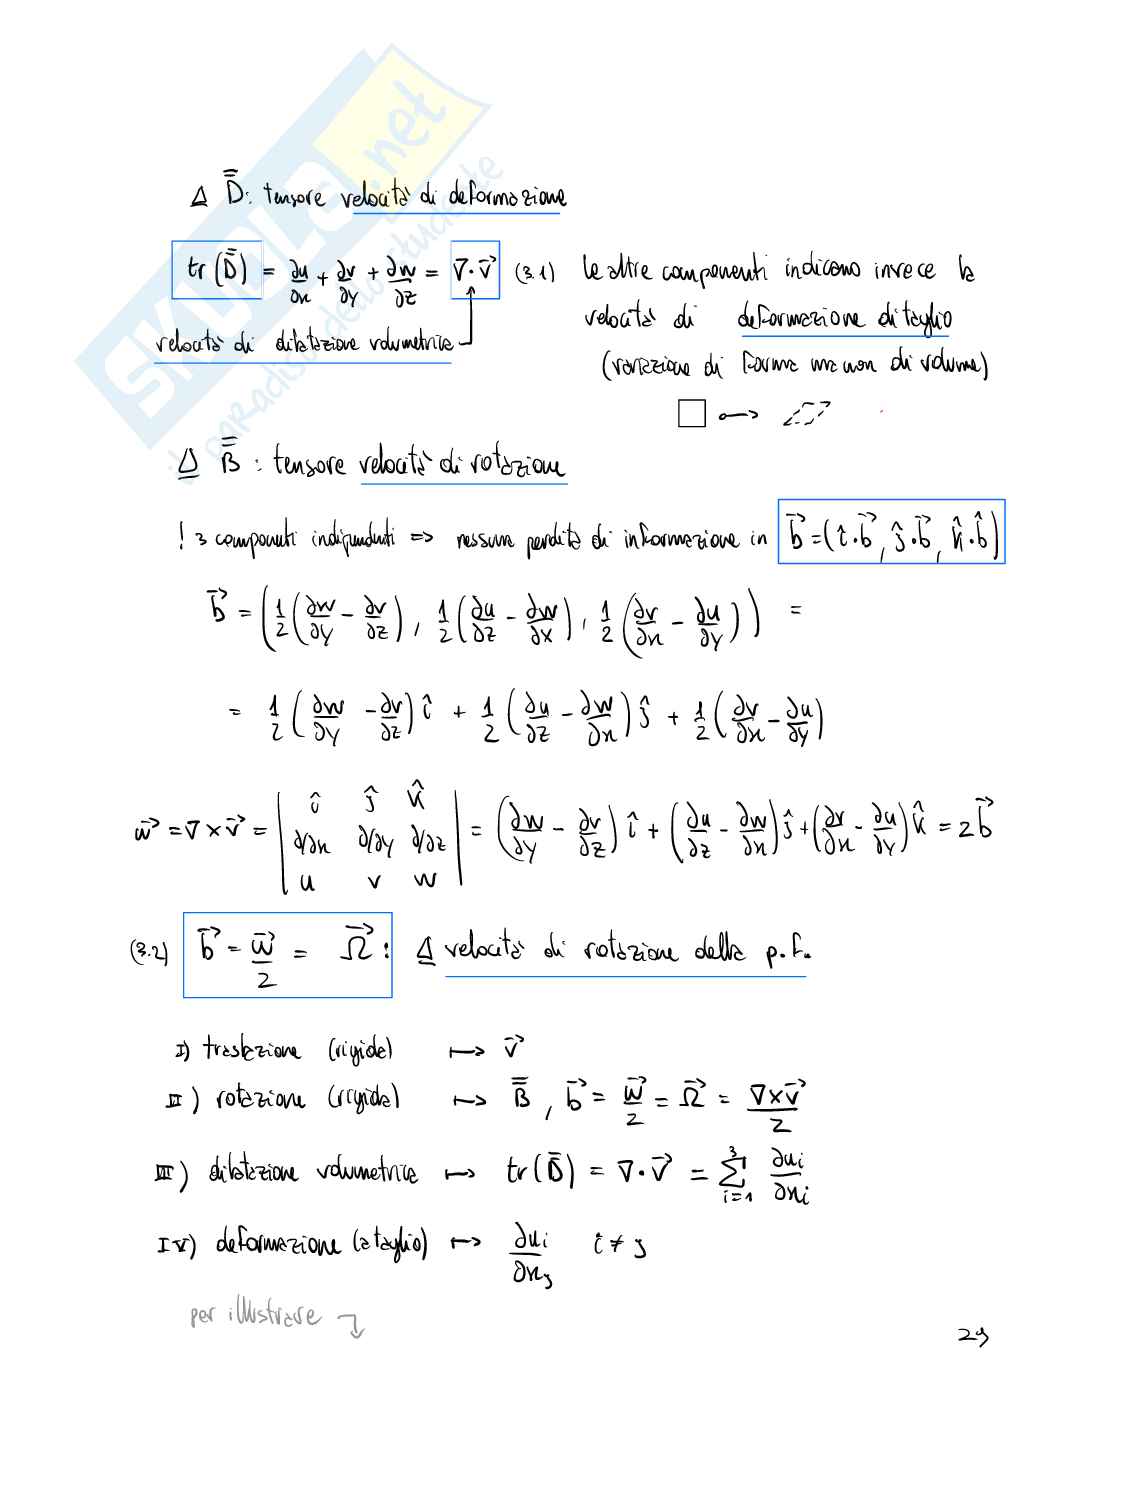 SKUOLA.net
il paradiso dello studente
Δ D̿: tensore velocità di deformazione
tr(D̿) = ∂u/∂x + ∂v/∂y + ∂w/∂z = ∇·v⃗ (3.1) le altre componenti indicano invece la
velocità di deformazione di taglio
velocità di dilatazione volumetrica
(variazione di forma ma non di volume)
Δ B̿: tensore velocità di rotazione
! 3 componenti indipendenti => nessuna perdita di informazione in b⃗ = (î·b⃗, ĵ·b⃗, k̂·b̂)
b⃗ = (1/2(∂w/∂y - ∂v/∂z), 1/2(∂u/∂z - ∂w/∂x), 1/2(∂v/∂x - ∂u/∂y)) =
= 1/2(∂w/∂y - ∂v/∂z)î + 1/2(∂u/∂z - ∂w/∂x)ĵ + 1/2(∂v/∂x - ∂u/∂y)
w⃗ = ∇×v⃗ = | î ĵ k̂ |
| ∂/∂x ∂/∂y ∂/∂z | = (∂w/∂y - ∂v/∂z)î + (∂u/∂z - ∂w/∂x)ĵ + (∂v/∂x - ∂u/∂y)k̂ = 2b⃗
| u v w |
(3.2) b⃗ = w⃗/2 = Ω⃗: Δ velocità di rotazione della p.f.
I) traslazione (rigida) ↦ v⃗
II) rotazione (rigida) ↦ B̿, b⃗ = w⃗/2 = Ω⃗ = ∇×v⃗/2
III) dilatazione volumetrica ↦ tr(D̿) = ∇·v⃗ = Σ_{i=1}^{3} ∂u_i/∂x_i
IV) deformazione (a taglio) ↦ ∂u_i/∂x_j i ≠ j
per illustrare
29